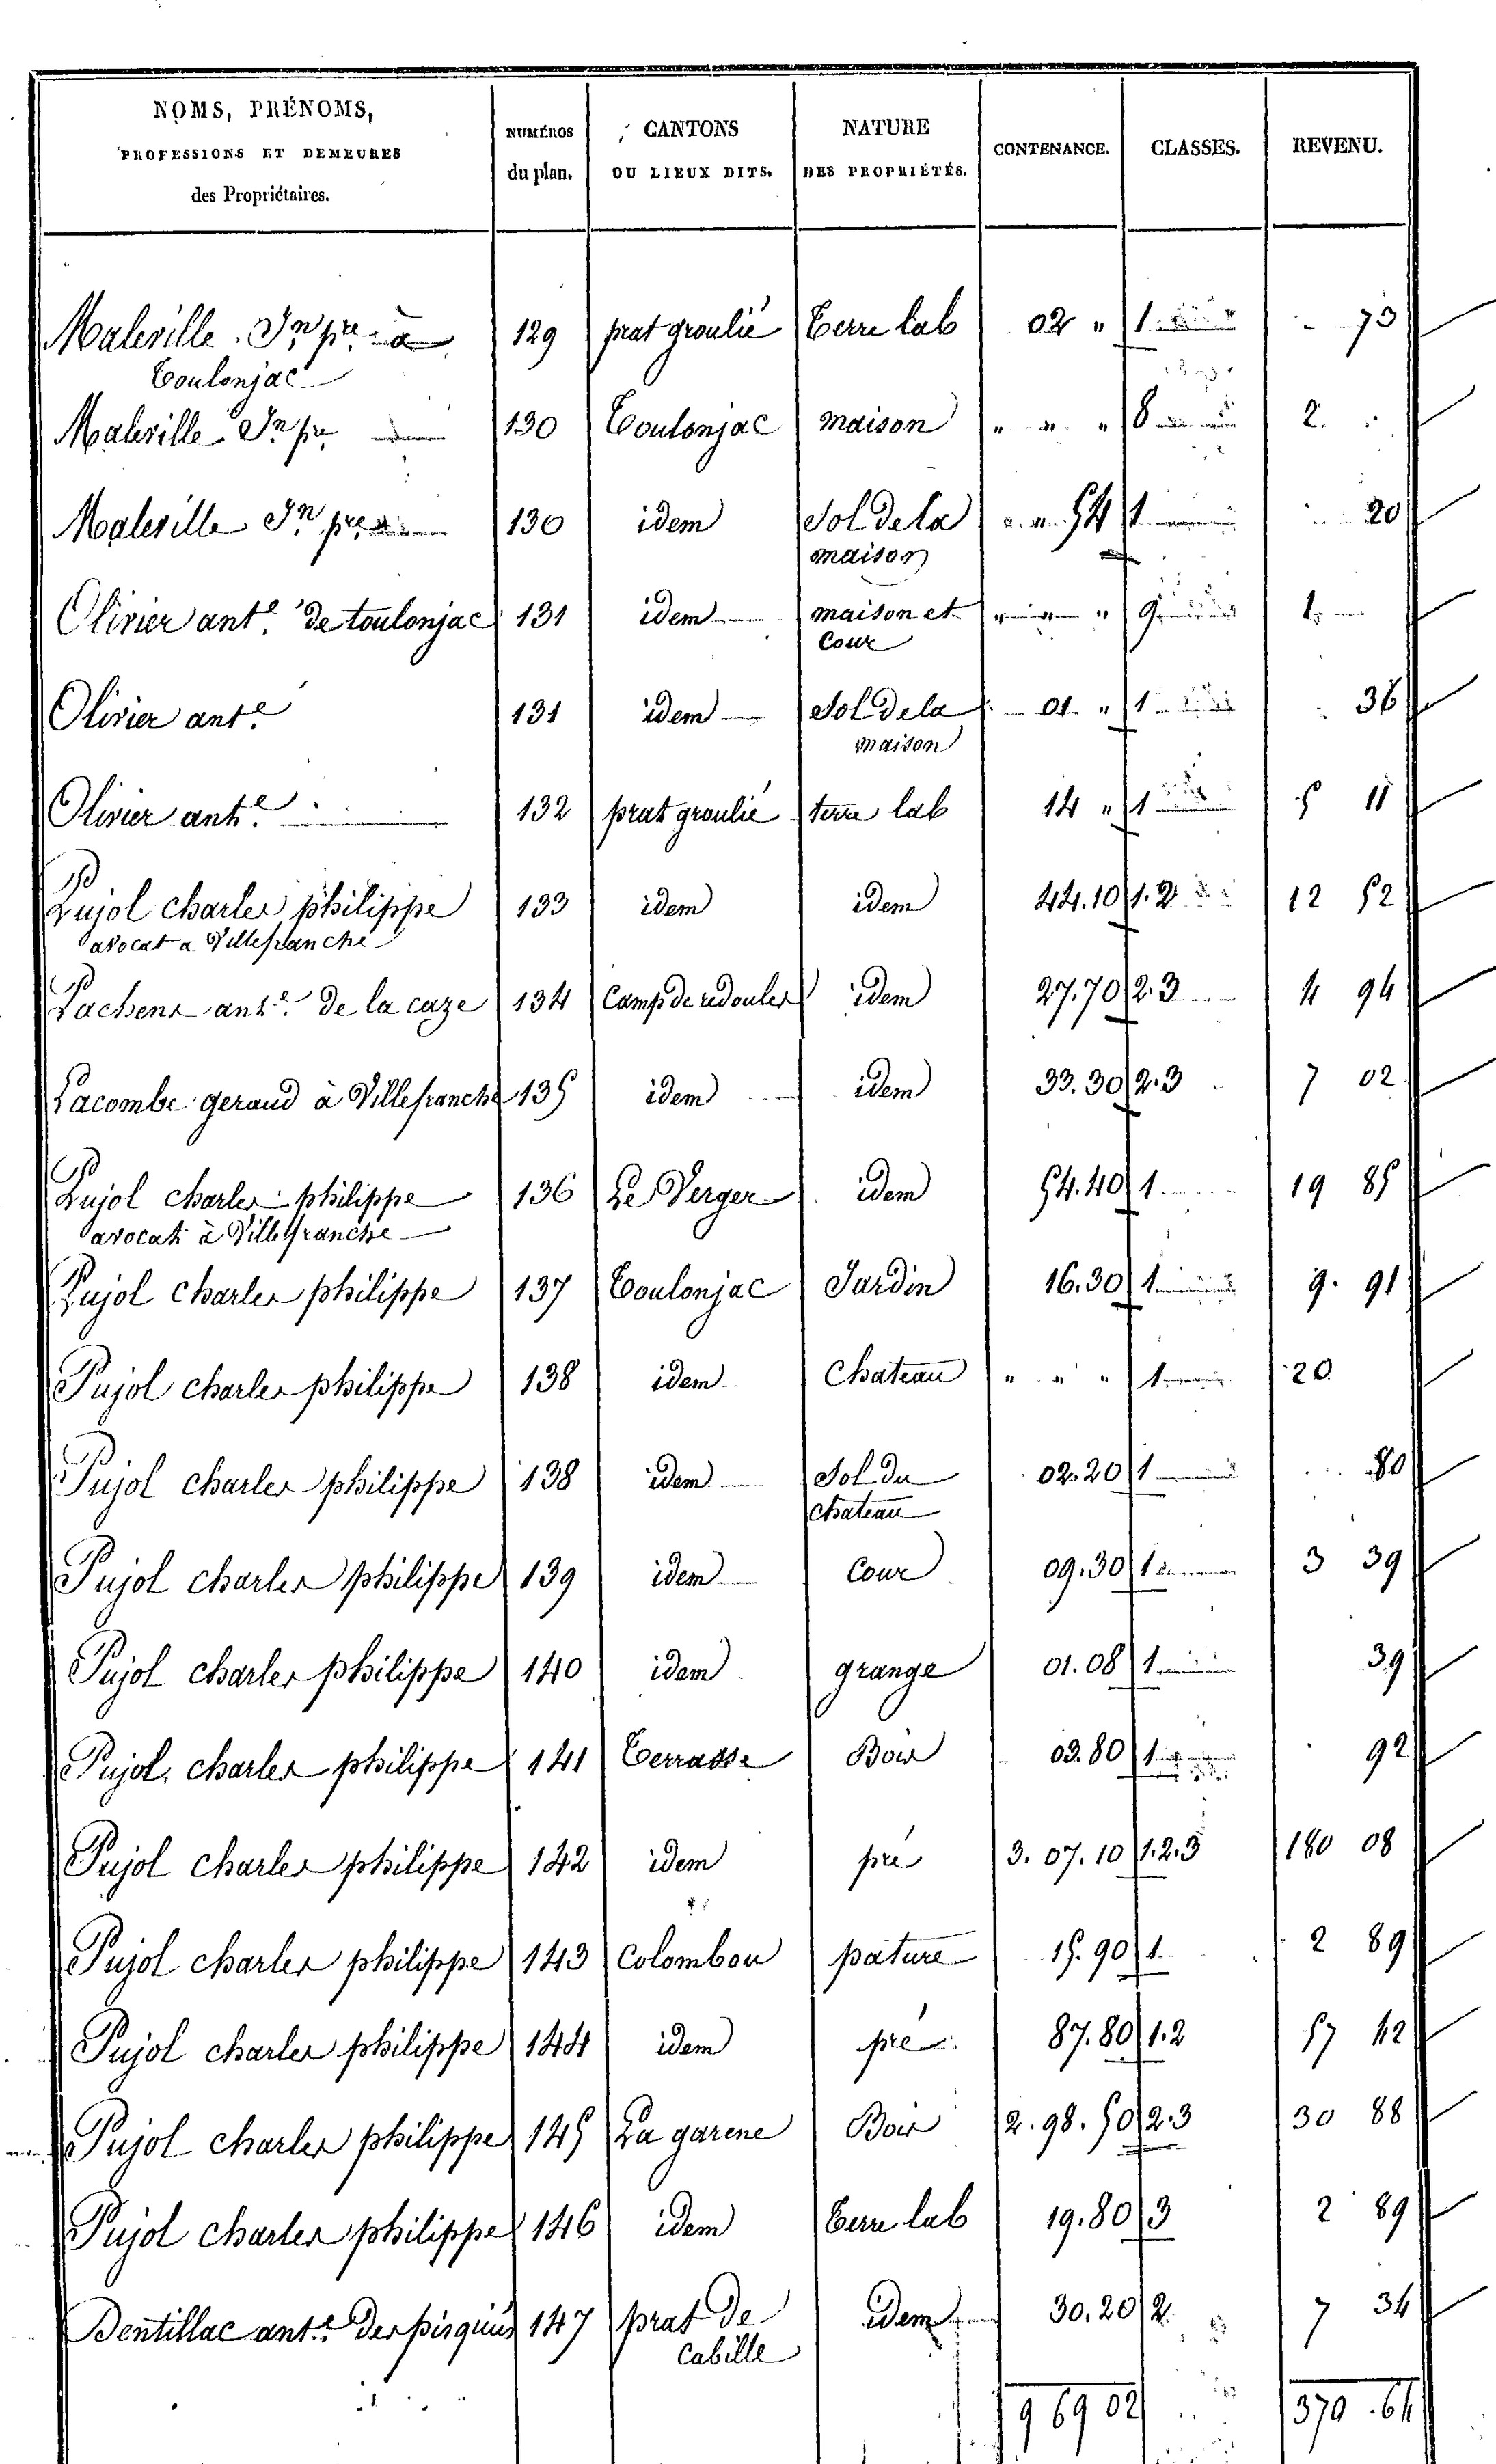 NOMS, PRÉNOMS, PROFESSIONS ET DEMEURES des Propriétaires. | NUMÉROS du plan. | CANTONS OU LIEUX DITS. | NATURE DES PROPRIÉTÉS. | CONTENANCE. | CLASSES. | REVENU.
Maleville Jn pre à 129 prat groulié Terre lab 02 " 1 73
Toulonjac
Maleville Jn pre 130 Toulonjac maison " " " 8 2
Maleville Jn pre 130 idem Sol de la 54 1 20
maison
Olivier ante. de toulonjac 131 idem maison et " " " 9 1
Cour
Olivier ante. 131 idem Sol de la 01 " 1 36
maison
Olivier ante. 132 prat groulié terre lab 14 " 1 5 11
Pujol charles philippe 133 idem idem 44.10 1.2 12 52
avocat a Villefranche
Pachens ante. de la caze 134 Camp de redoules idem 27.70 2.3 4 94
Lacombe geraud à Villefranche 135 idem idem 33.30 2.3 7 02
Pujol charles philippe 136 Le Verger idem 54.40 1 19 85
avocat à Villefranche
Pujol charles philippe 137 Toulonjac Jardin 16.30 1 9. 91
Pujol charles philippe 138 idem Chateau " " " 1 20
Pujol charles philippe 138 idem Sol du 02.20 1 80
chateau
Pujol charles philippe 139 idem Cour 09.30 1 3 39
Pujol charles philippe 140 idem grange 01.08 1 39
Pujol charles philippe 141 Terrasse Bois 03.80 1 92
Pujol charles philippe 142 idem pré 3. 07. 10 1.2.3 180 08
Pujol charles philippe 143 Colombou pature 15.90 1. 2 89
Pujol charles philippe 144 idem pré 87.80 1.2 57 42
Pujol charles philippe 145 La garene Bois 2. 98. 50 2.3 30 88
Pujol charles philippe 146 idem Terre lab 19.80 3 2 89
Dentillac ante. des 147 prat de idem 30.20 2 7 34
Cabille
9 69 02 370 .64